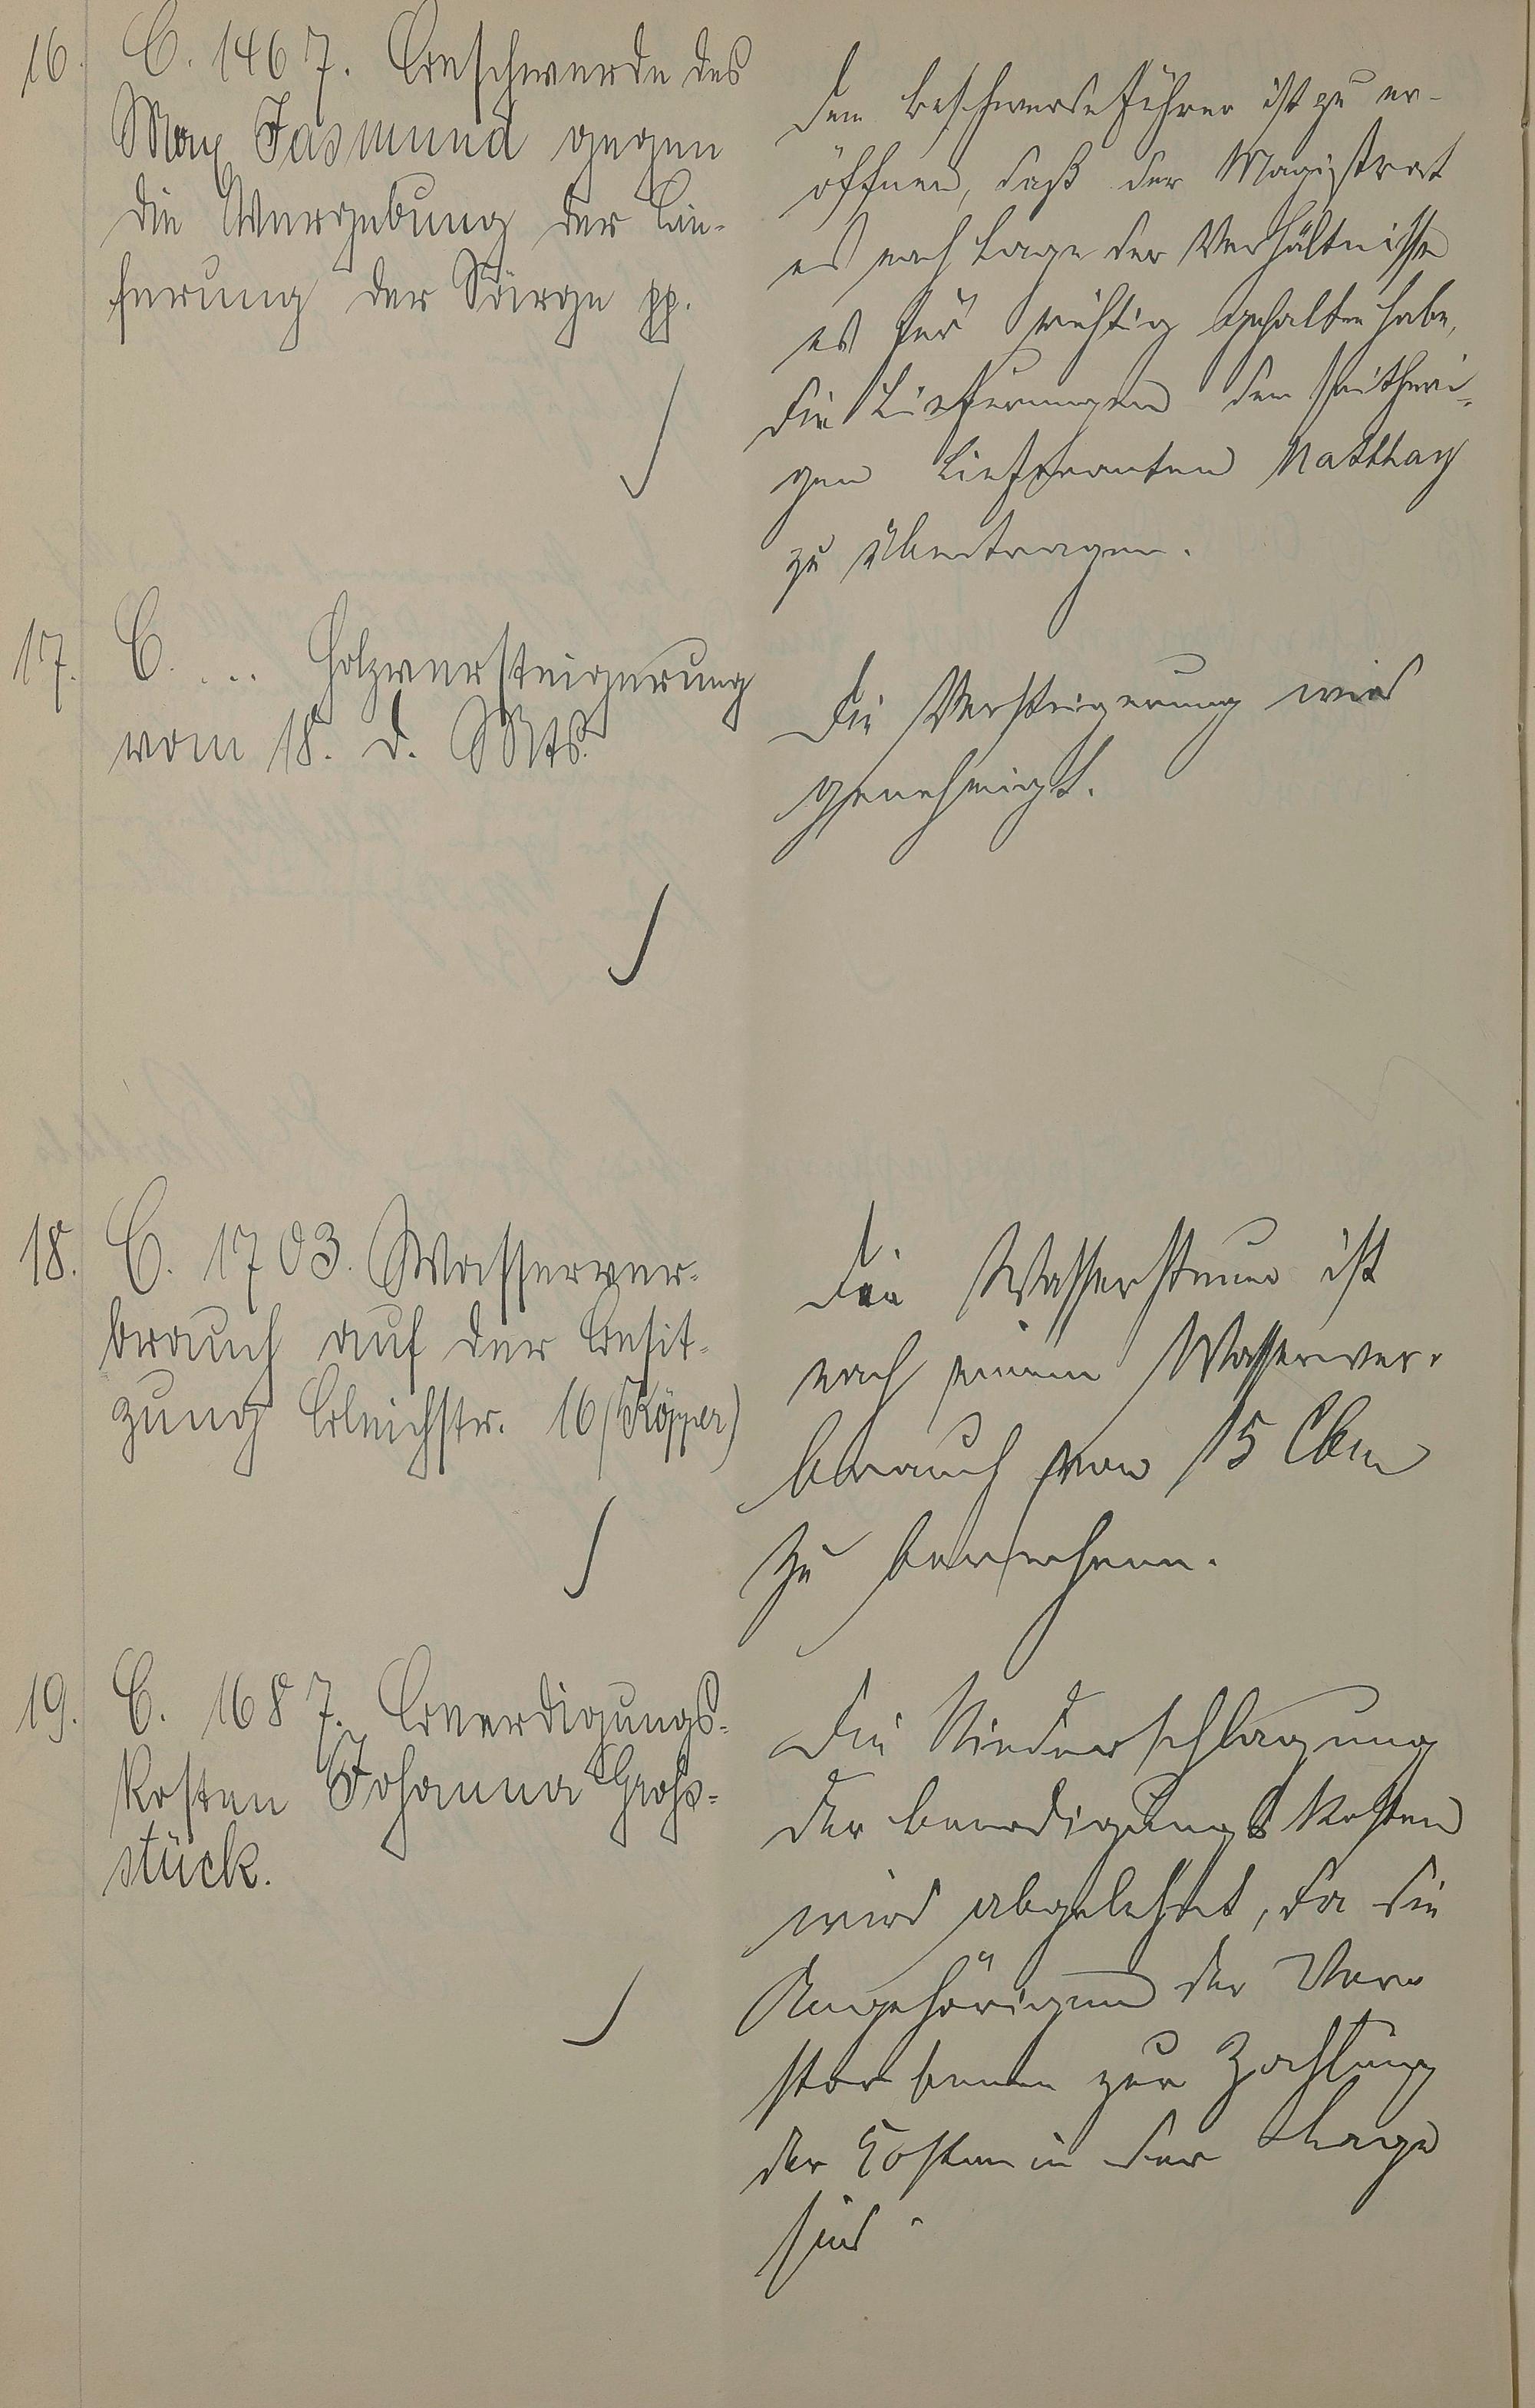 16. C. 1467. Beschwerde des
Max Jasmund gegen
die Vergebung der Lie-
ferung der Särge pp.
Dem Beschwerdeführer ist zu er-
öffnen, daß der Magistrat
es nach Lage der Verhältnisse
es für richtig gehalten habe,
die Lieferungen dem seitheri-
gen Lieferanten Matthay
zu übertragen.
17. C. ... Holzversteigerung
vom 18. d. Mts.
Die Versteigerung wird
genehmigt.
18. C. 1703. Wasserver-
brauch auf der Besit-
zung Bleichstr. 16 (Köpper)
Die Wassersteuer ist
nach einem Wasserver-
brauch von 15 Cbm
zu berechnen.
19. C. 1687. Beerdigungs-
kosten Johanna Groß-
stück.
Die Niederschlagung
der Beerdigungskosten
wird abgelehnt, da die
Angehörigen der Ver-
storbenen zur Zahlung
der Kosten in der Lage
sind.